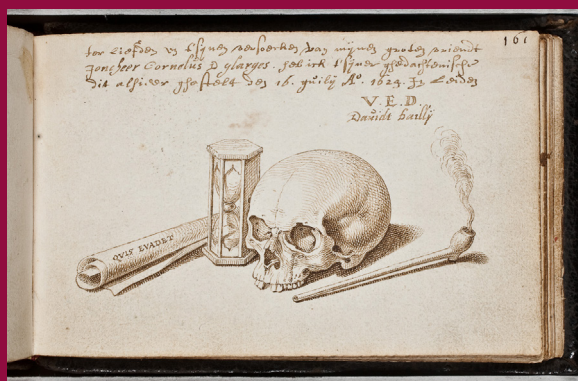 161
ter liefden en t'sijnen versoecken van mijnen groten vriendt
Joncheer Cornelus D glarges. heb ick t'sijner ghedachtenisse
dit alhier ghestelt den 16. Julij Aº. 1624. In Leiden
V. E. D
Davidt bailly
QVIS EVADET